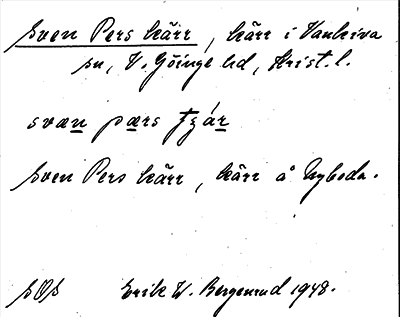 Sven Pers kärr, kärr i Vankiva
sn, V. Göinge hd, Krist. l.
svæn pærs tʒár
Sven Pers kärr, kärr å Nyboda.
Erik W. Bergenrud 1948.